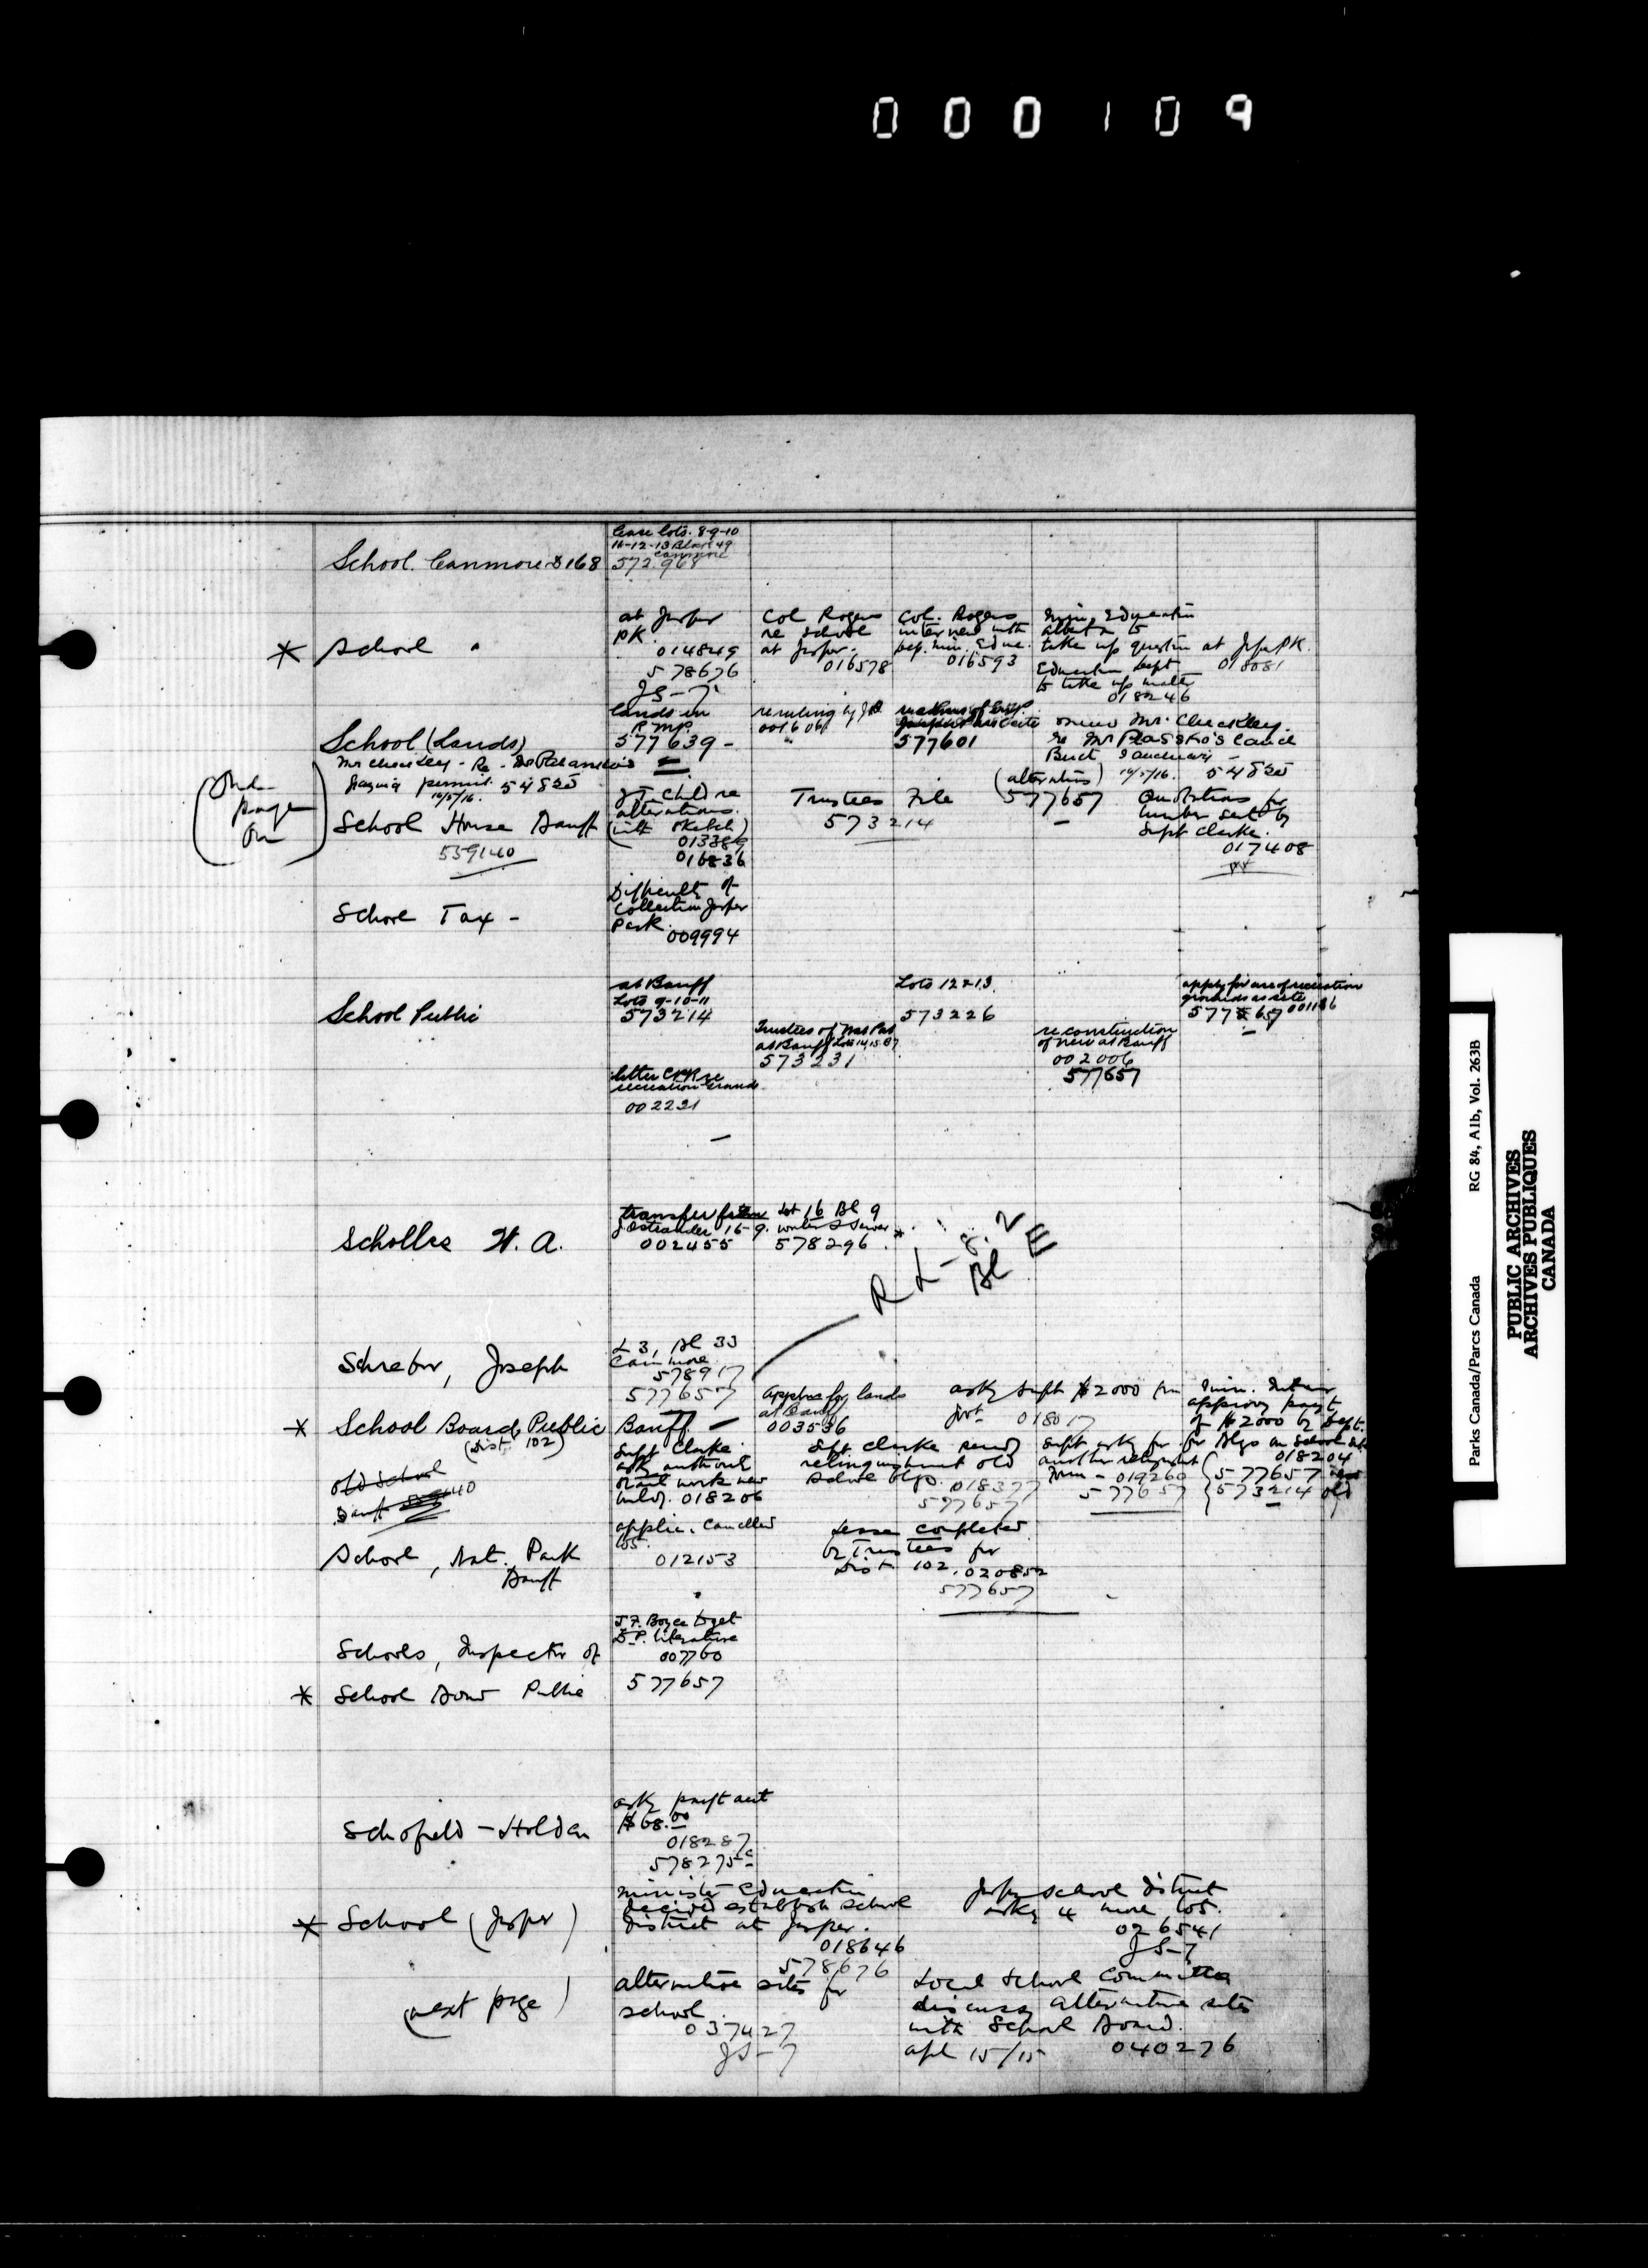 000109
School. Canmore 168
Lease lots. 8-9-10
11-12-13 Block 49
Canmore
572968
* School
at Jasper
PK.
014849
578676
JS-7
Col Rogers
re school
at Jasper.
016578
Col. Rogers
interview with
Dep. Min. Educ.
016593
Min. Education
Alberta to
take up question at Jasper PK.
018081
Education Dept
to take up matter
018246
School (Lands)
lands in
R.M.P.
577639 -
re ruling by
001606
577601
Mr. Checkley
re Mr
Grazing permit 54820
10/5/16.
10/5/16. 54820
(2nd
page
on)
School House Banff
559140
J T Child re
alterations.
(with sketch)
013389
016836
Trustees File
573214
(alteration)
577657
Quotations for
lumber sent by
Supt Clarke.
017408
School Tax -
Difficulty of
Collection Jasper
Park.
009994
School Public
at Banff
Lots 9-10-11
573214
Trustees of
at Banff Lots 14, 15
573231
Lots 12 & 13.
573226
reconstruction
of new at Banff
002006
577657
apply for use of recreation
grounds as site
577657 001186
letter CPR re
recreation grounds
002221
Scholles W. A.
transfer from
J Ostrander 16-9.
002455
Lot 16 Bl 9
water & sewer
578296
R L-8.2
Bl III
Schreter, Joseph
L 3, Bl 33
Canmore
578917
577657
* School Board, Public
(Dist. 102)
Banff -
applies for lands
at Banff
003536
asks Supt $2000 from
Govt 018017
Min. Interior
approves payt
of $2000 by Dept.
for Bldgs on School
018204
577657 new
573214 old
Old School
Banff 559140
Supt Clarke
asks authority
start work new
bldg. 018206
Supt. Clarke sends
relinquishment old
School bldgs. 018377
577657
Supt asks for
another relinqmt
form - 019260
577657
School, Nat. Park
Banff
applic. cancelled
lots.
012153
Lease completed
by Trustees for
Dist 102. 020852
577657
Schools, Inspector of
J. F. Boyce to get
D.P. literature
007760
* School Board Public
577657
Schofield-Holden
asks payt acct
$68.00
018287
578275
* School (Jasper)
Minister Education
decided establish school
District at Jasper.
018646
578676
Jasper School District
asks 4 more lots.
026541
JS-7
(next page)
alternative sites for
school.
037427
JS-7
Local School Committee
discuss alternative sites
with School Board.
Apl 15/15 040276
Parks Canada/Parcs Canada RG 84, A1b, Vol. 263B
PUBLIC ARCHIVES
ARCHIVES PUBLIQUES
CANADA